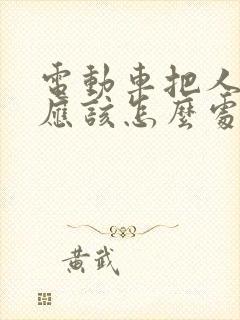 電動車把人
應該怎麼處
黃武